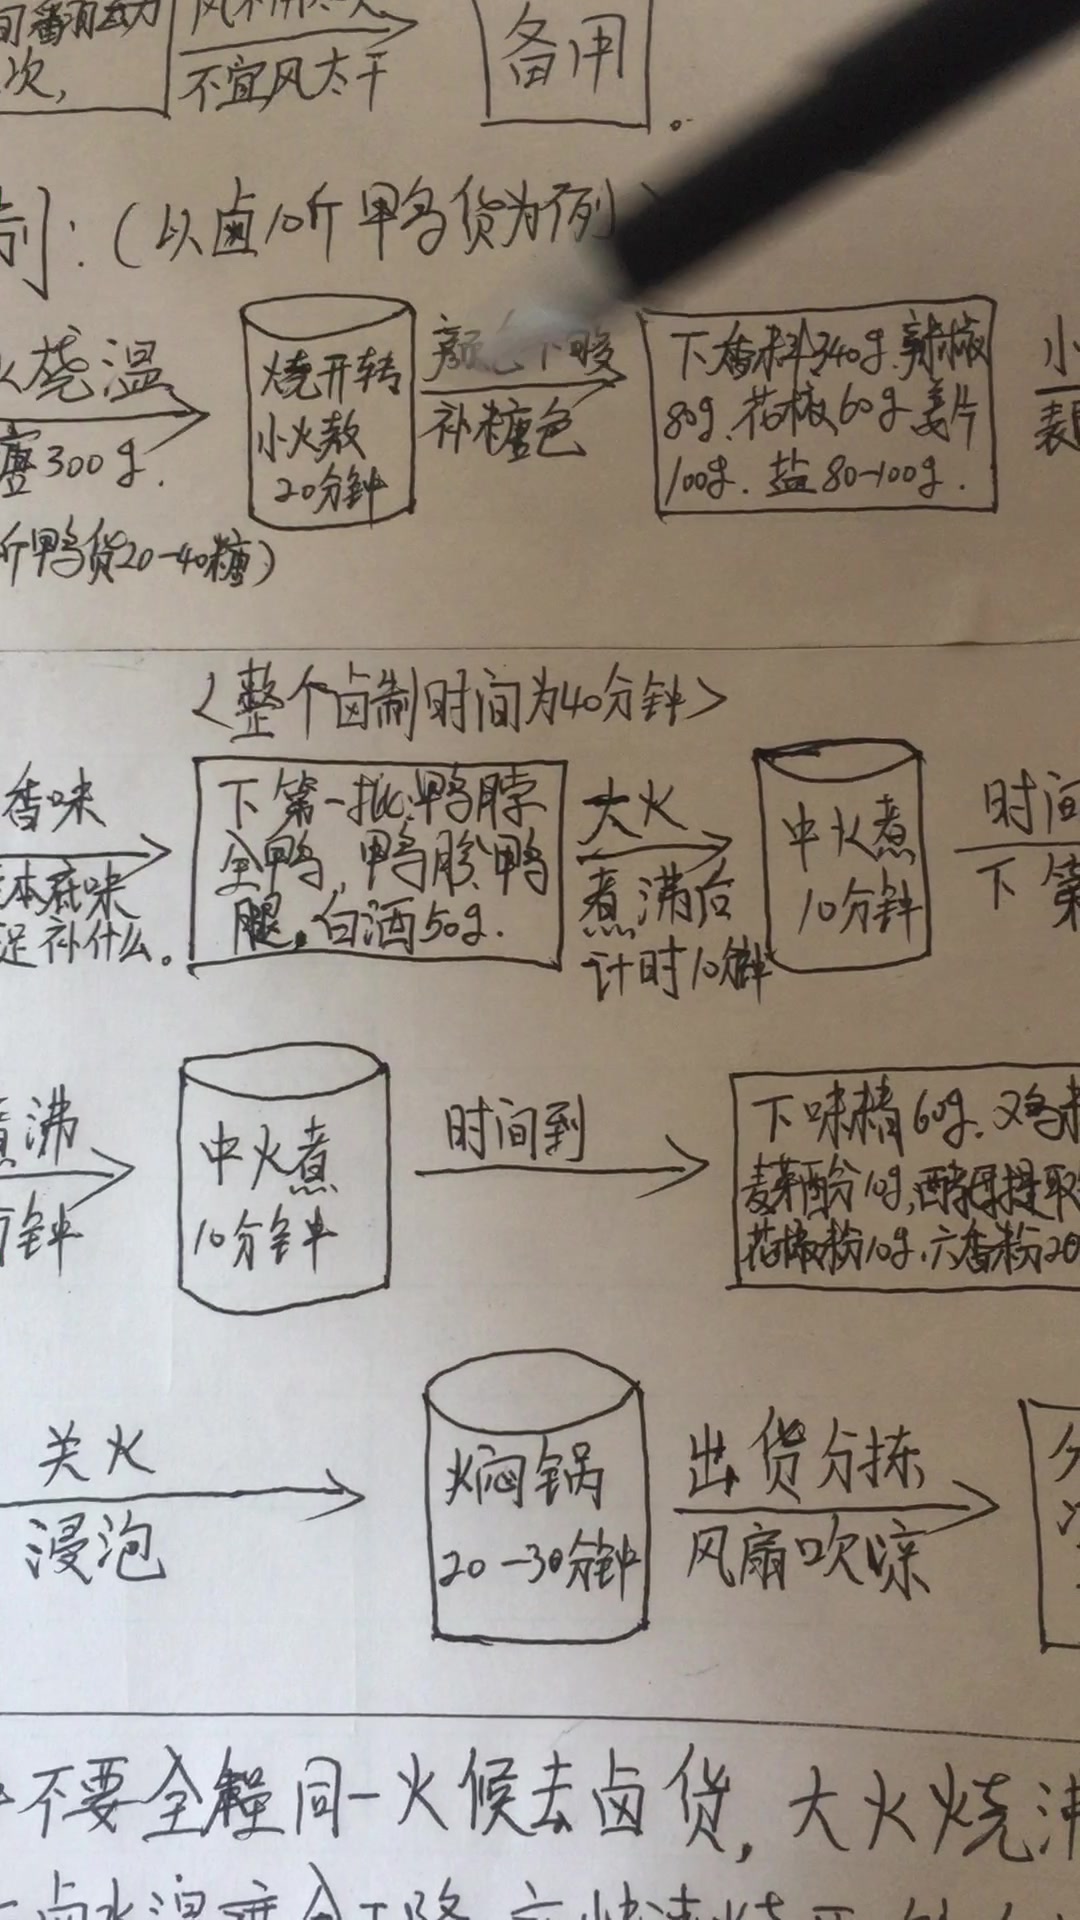 次,
不宜风太干
备用
制:(以卤10斤甲鸭货为例
火烧温
300g.
斤甲鸭货20-40糖)
烧开转
小火熬
20分钟
补糖色
下香料340g.辣椒
80g.花椒60g.姜片
100g.盐80-100g.
小
<整个卤制时间为40分钟>
香味
本底味
足补什么。
下第一批:鸭脖
全鸭,鸭胗、鸭
腿。白酒50g.
大火
煮沸后
计时10分钟
中火煮
10分钟
时间
下第
煮沸
分钟
中火煮
10分钟
时间到
下味精60g.鸡
麦芽酚10g,酵母提取
花椒粉10g.六香粉20
关火
浸泡
焖锅
20-30分钟
出货分拣
风扇吹凉
不要全程同一火候去卤货,大火烧沸